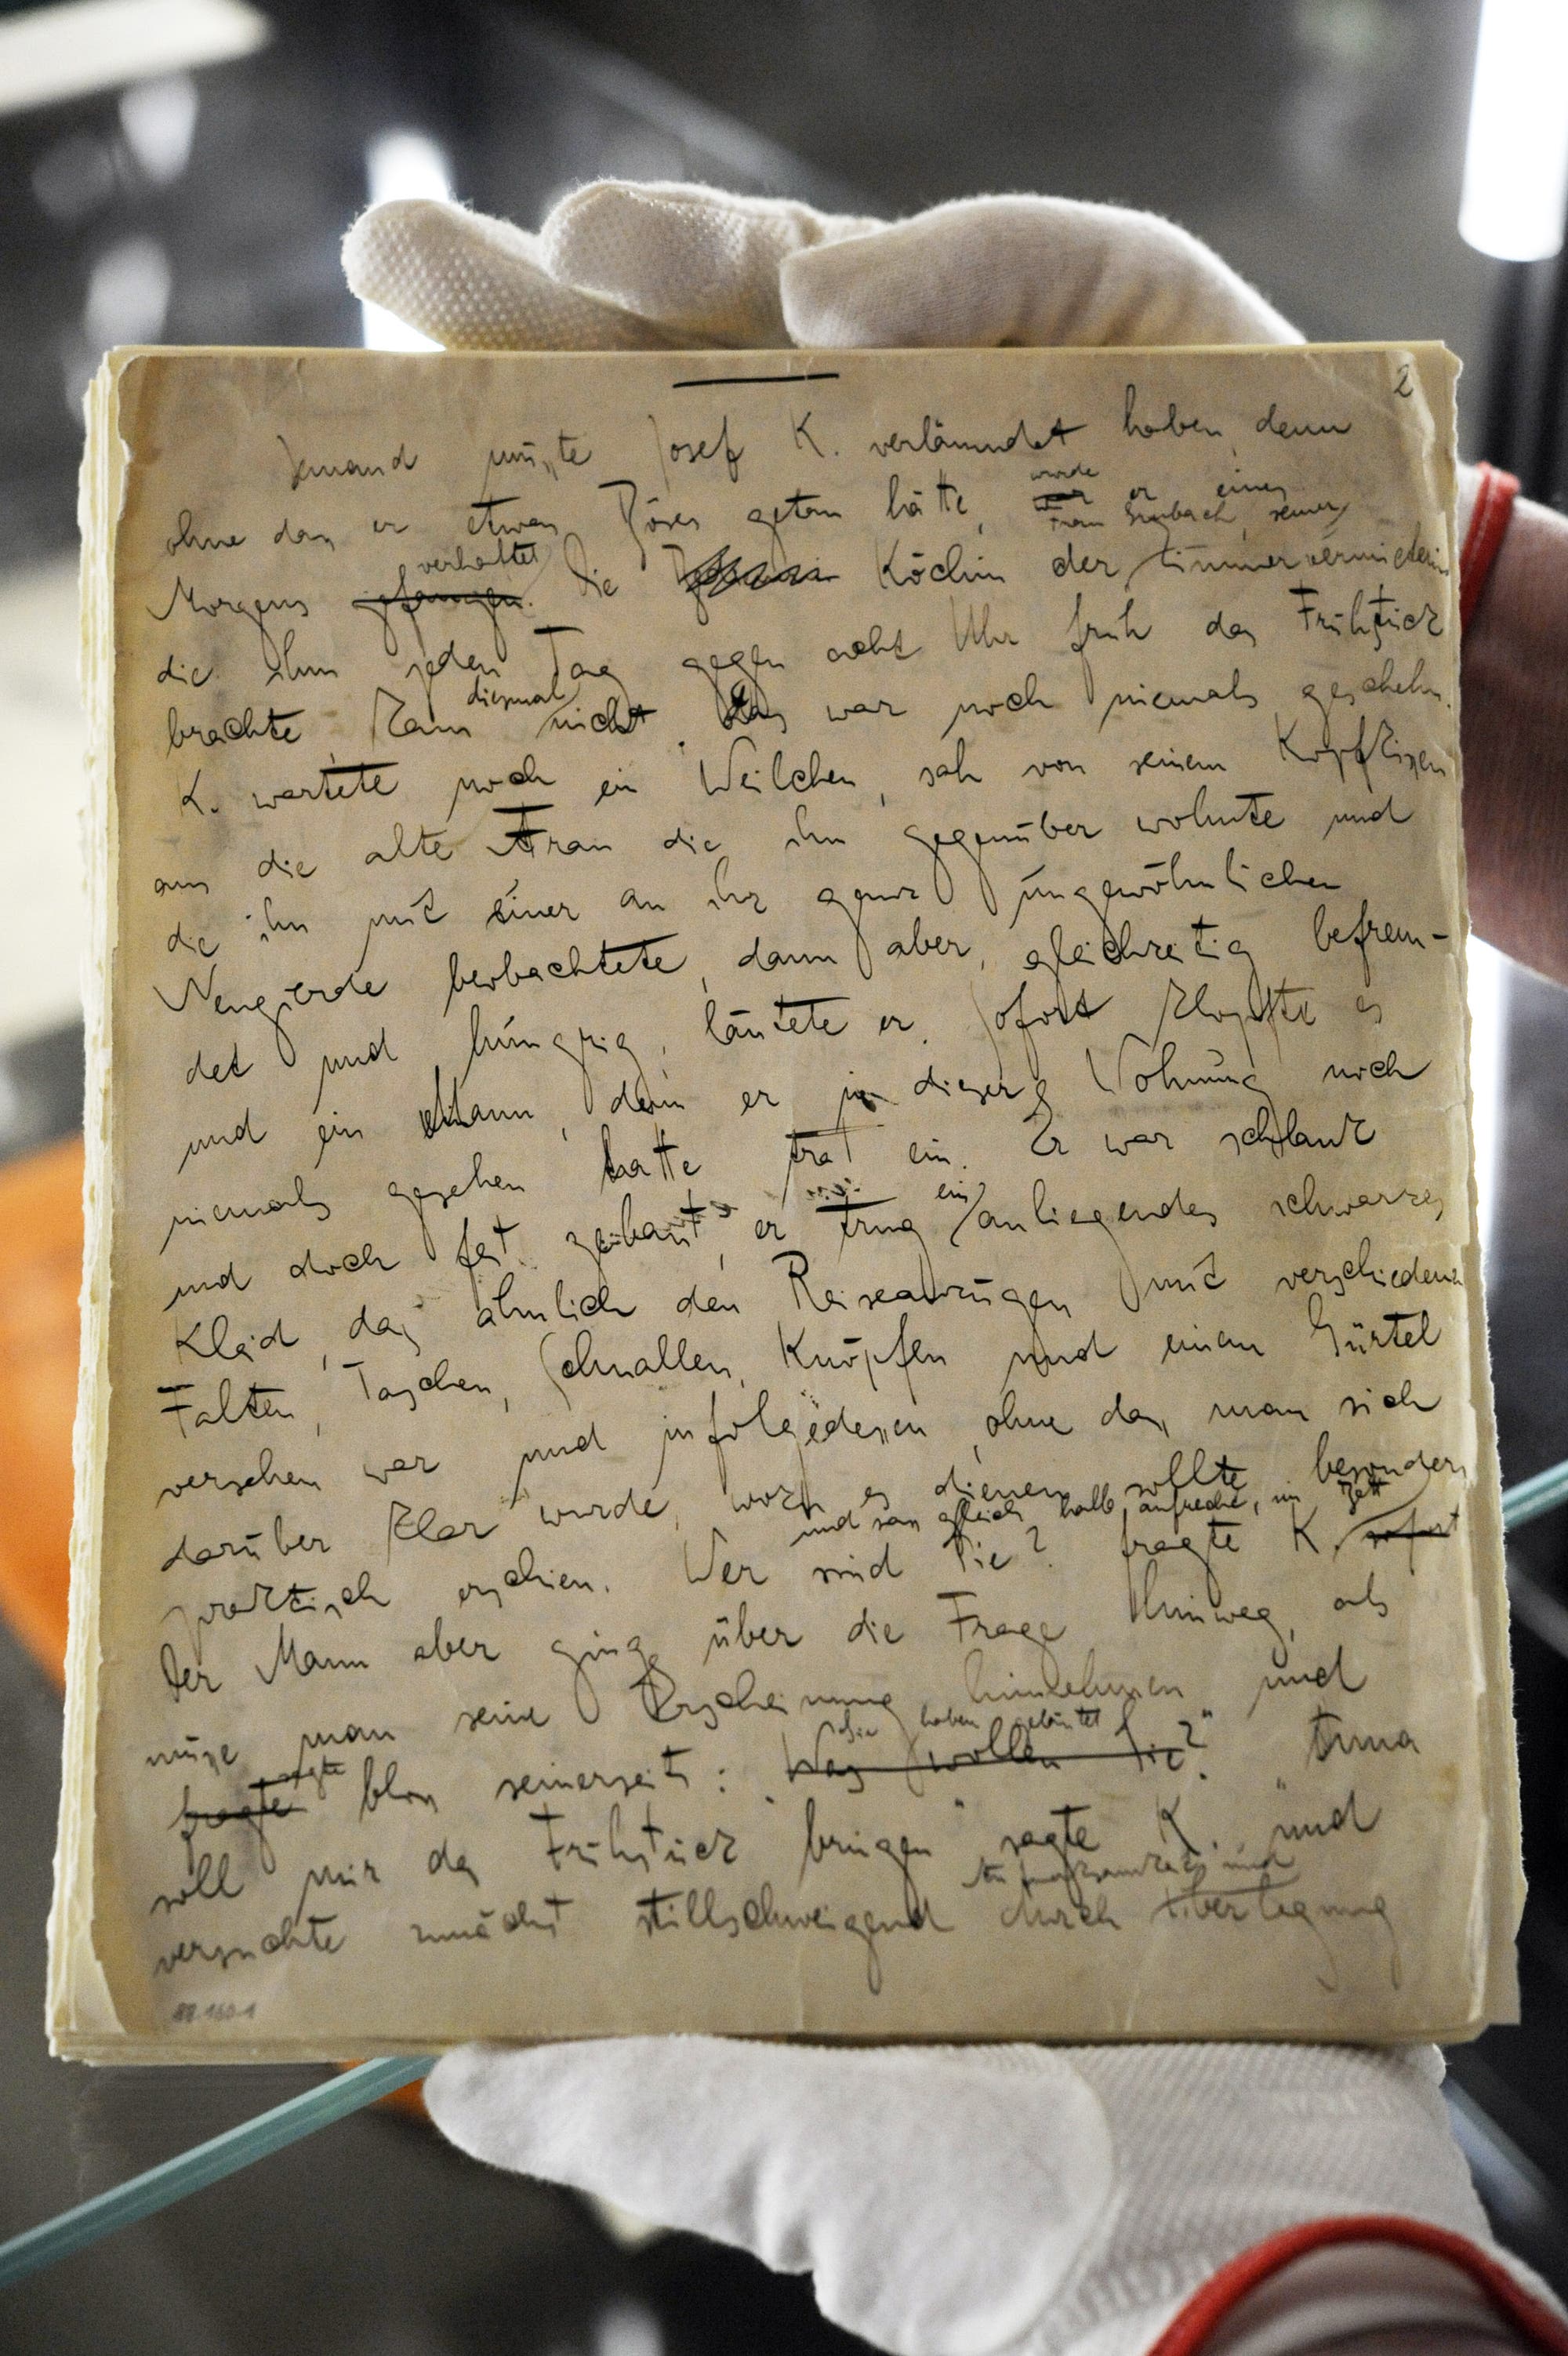 2
Jemand mußte Josef K. verläumdet haben, denn
wurde
ohne daß er etwas Böses getan hätte, war er eines
verhaftet Frau Grubach, seiner
Morgens gefangen. Die Köchin der Zimmervermieterin
die ihm jeden Tag gegen acht Uhr früh das Frühstück
diesmal
brachte, kam nicht. Das war noch niemals geschehn.
K. wartete noch ein Weilchen, sah von seinem Kopfkissen
aus die alte Frau die ihm gegenüber wohnte und
die ihn mit einer an ihr ganz ungewöhnlichen
Neugierde beobachtete, dann aber, gleichzeitig befrem-
det und hungrig, läutete er. Sofort klopfte es
und ein Mann, den er in dieser Wohnung noch
niemals gesehen hatte trat ein. Er war schlank
ein
und doch fest gebaut, er trug anliegendes schwarzes
Kleid, das ähnlich den Reiseanzügen mit verschiedenen
Falten, Taschen, Schnallen, Knöpfen und einem Gürtel
versehen war und infolgedessen, ohne daß man sich
darüber klar wurde, wozu es dienen sollte, besonders
und saß gleich halb aufrecht im Bett
praktisch erschien. Wer sind Sie? fragte K. sofort
Der Mann aber ging über die Frage hinweg, als
müsse man seine Erscheinung hinnehmen und
sagte Sie haben geläutet
fragte bloß seinerseits: "Was wollen Sie?" "Anna
soll mir das Frühstück bringen" sagte K. "und
Aufmerksamkeit und
versuchte zunächst stillschweigend durch Überlegung